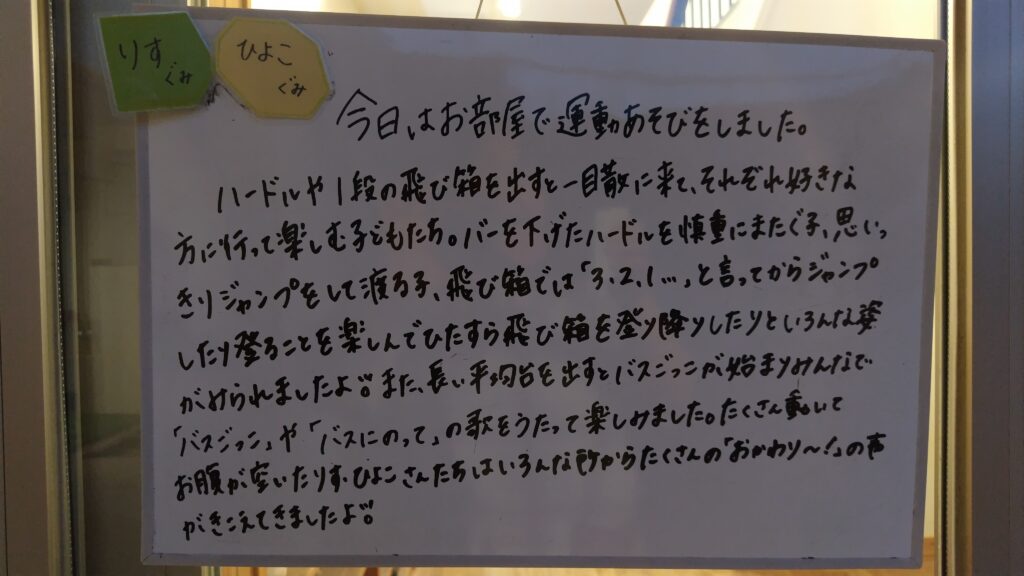 りすぐみ
ひよこぐみ
今日はお部屋で運動あそびをしました。
ハードルや1段の飛び箱を出すと一目散に来て、それぞれ好きな
方に行って楽しむ子どもたち。バーを下げたハードルを慎重にまたぐ子、思いっ
きりジャンプをして渡る子、飛び箱では「3.2.1…」と言ってからジャンプ
したり登ることを楽しんでひたすら飛び箱を登り降りしたりといろんな姿
がみられましたよ♡。また、長い平均台を出すとバスごっこが始まりみんなで
「バスごっこ」や「バスにのって」の歌をうたって楽しみました。たくさん動いて
お腹が空いたりす・ひよこさんたちはいろんな所からたくさんの「おかわり〜!」の声
がきこえてきましたよ♡。